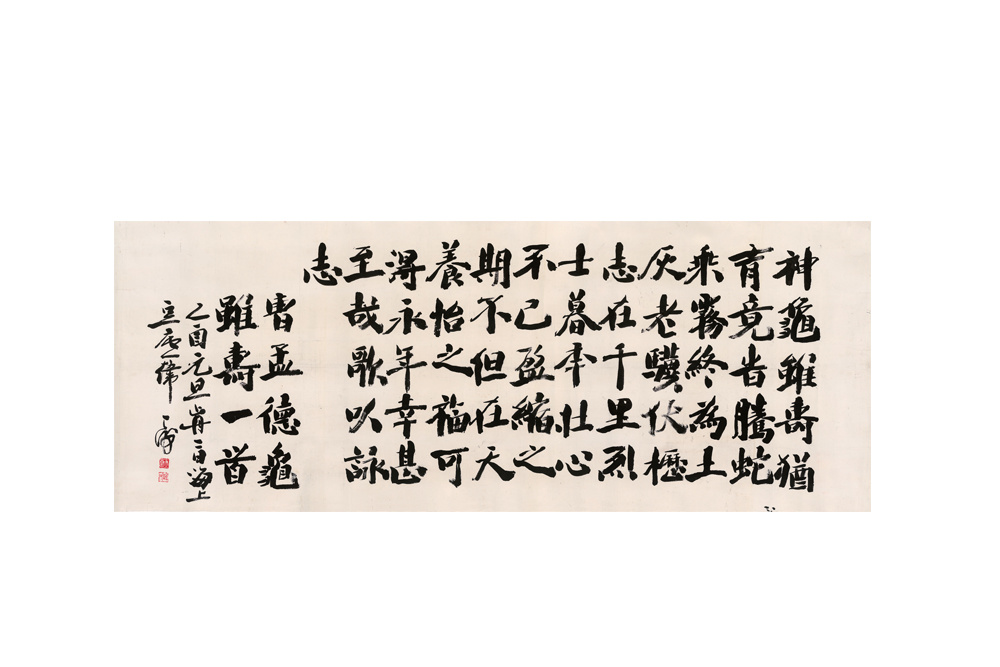 神龜雖壽猶
有竟旹騰蛇
乘霧終為土
灰老驥伏櫪
志在千里烈
士暮年壯心
不已盈縮之
期不但在天
養怡之福可
得永年幸甚
至哉歌以詠
志
曹孟德龜
雖壽一首
乙酉元旦海上